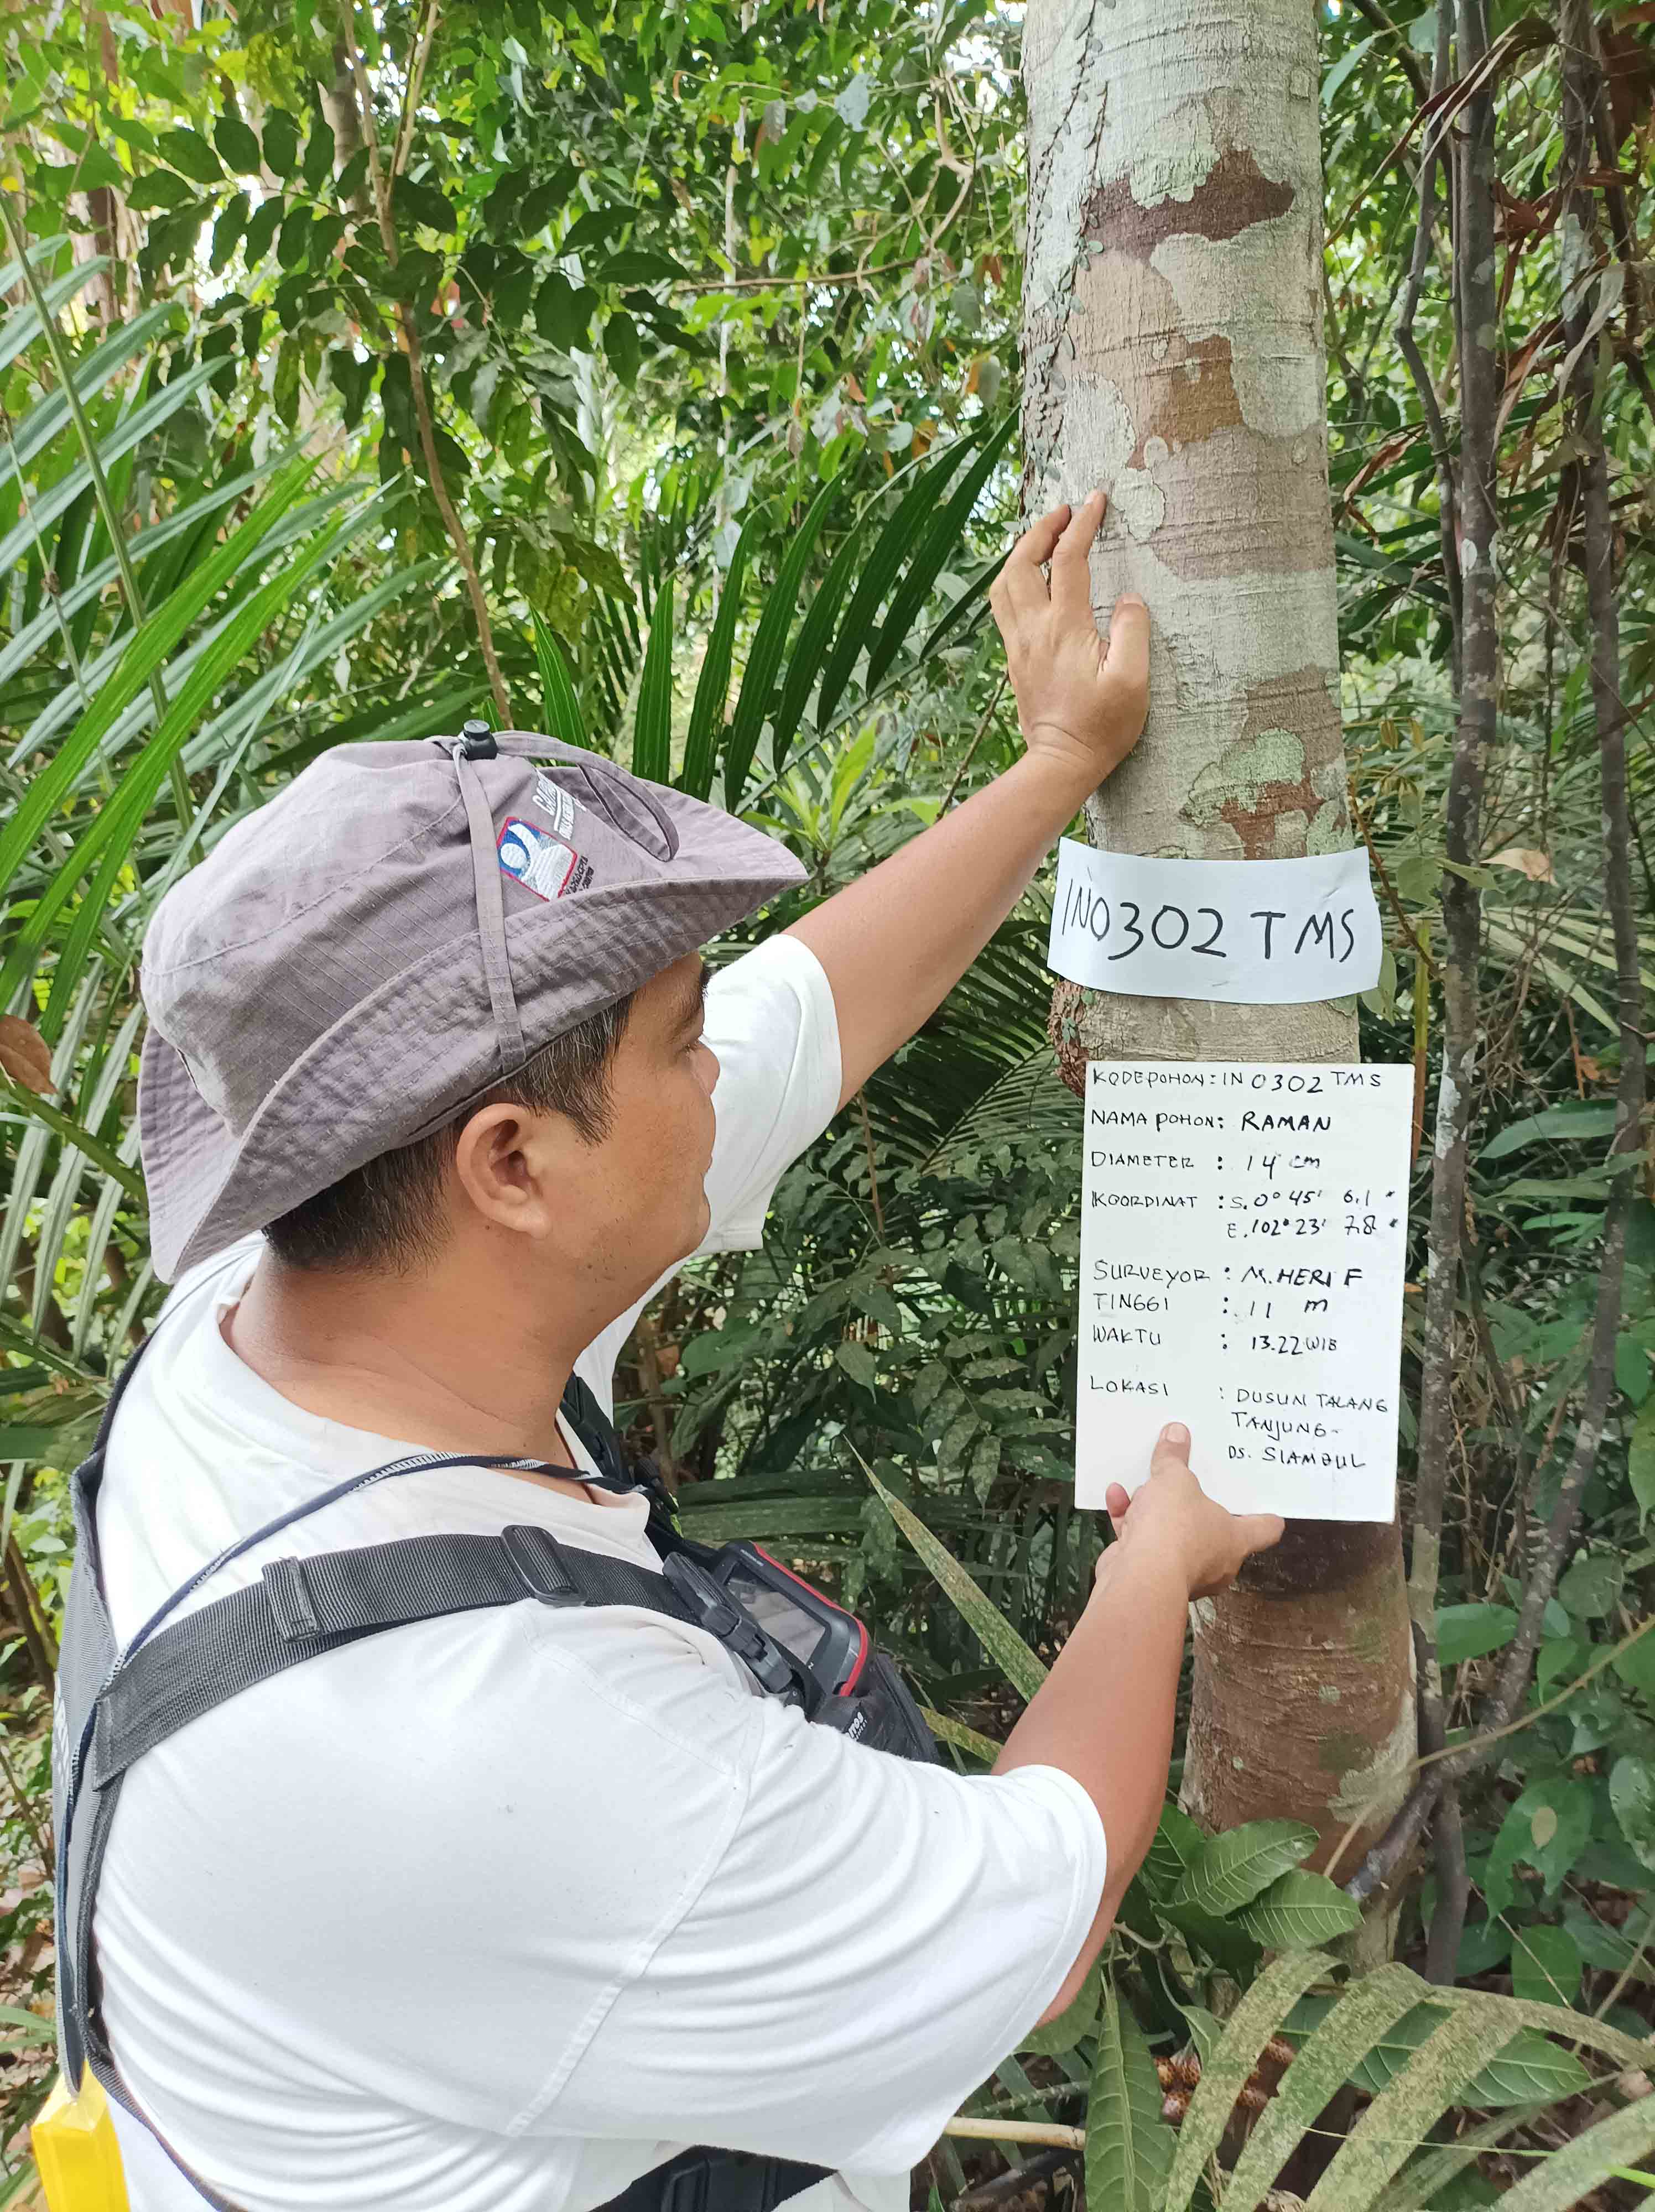 IN0302 TMS
KODE POHON : IN 0302 TMS
NAMA POHON : RAMAN
DIAMETER : 14 cm
KOORDINAT : S. 0° 45' 6.1 "
E. 102° 23' 7.8 "
SURVEYOR : M. HERI F
TINGGI : 11 m
WAKTU : 13.22 WIB
LOKASI : DUSUN TALANG
TANJUNG -
DS. SIAMBUL